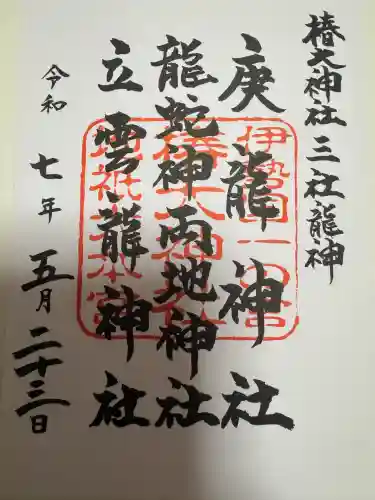 椿大神社三社龍神
庚龍神社
龍蛇神両地神社
立雲龍神社
令和七年五月二十三日
伊勢国一の宮
椿大神社
地祇大本宮